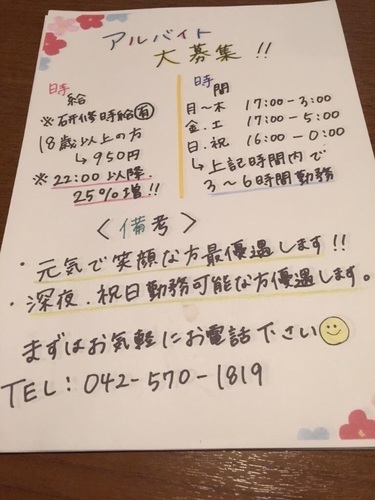 アルバイト
大募集!!
時
給
※研修時給有
18歳以上の方
↳950円
※22:00以降
25%増!!
時
間
月～木 17:00-3:00
金.土 17:00-5:00
日.祝 16:00-0:00
↳上記時間内で
3～6時間勤務
〈備考〉
・元気で笑顔な方最優遇します!!
・深夜.祝日勤務可能な方優遇します。
まずはお気軽にお電話下さい
TEL:042-570-1819